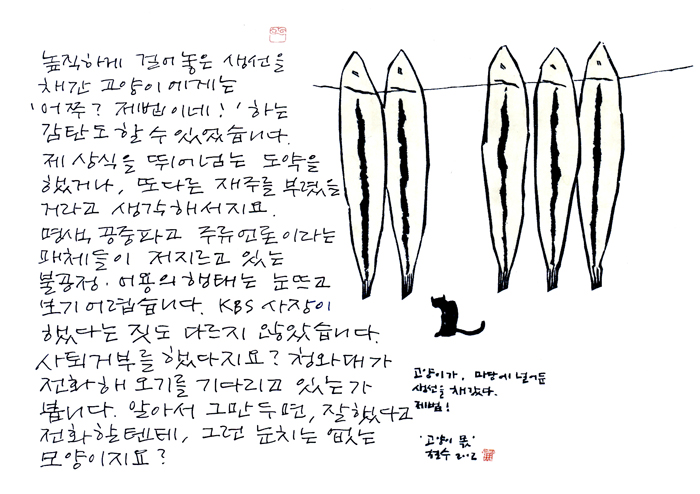 높직하게 걸어놓은 생선을
채간 고양이에게는
'어쭈? 제법이네!' 하는
감탄도 할 수 있었습니다.
제 상식을 뛰어넘는 도약을
했거나, 또다른 재주를 부렸을
거라고 생각해서지요.
명색 공중파고 주류언론이라는
매체들이 저지르고 있는
불공정·어용의 행태는 눈뜨고
보기 어렵습니다. KBS 사장이
했다는 짓도 다르지 않았습니다.
사퇴거부를 했다지요? 청와대가
전화해 오기를 기다리고 있는가
봅니다. 알아서 그만두면, 잘했다고
전화할텐데, 그런 눈치는 없는
모양이지요?
고양이가, 마당에 널어둔
생선을 채갔다.
제법!
'고양이 몫'
철수 2012